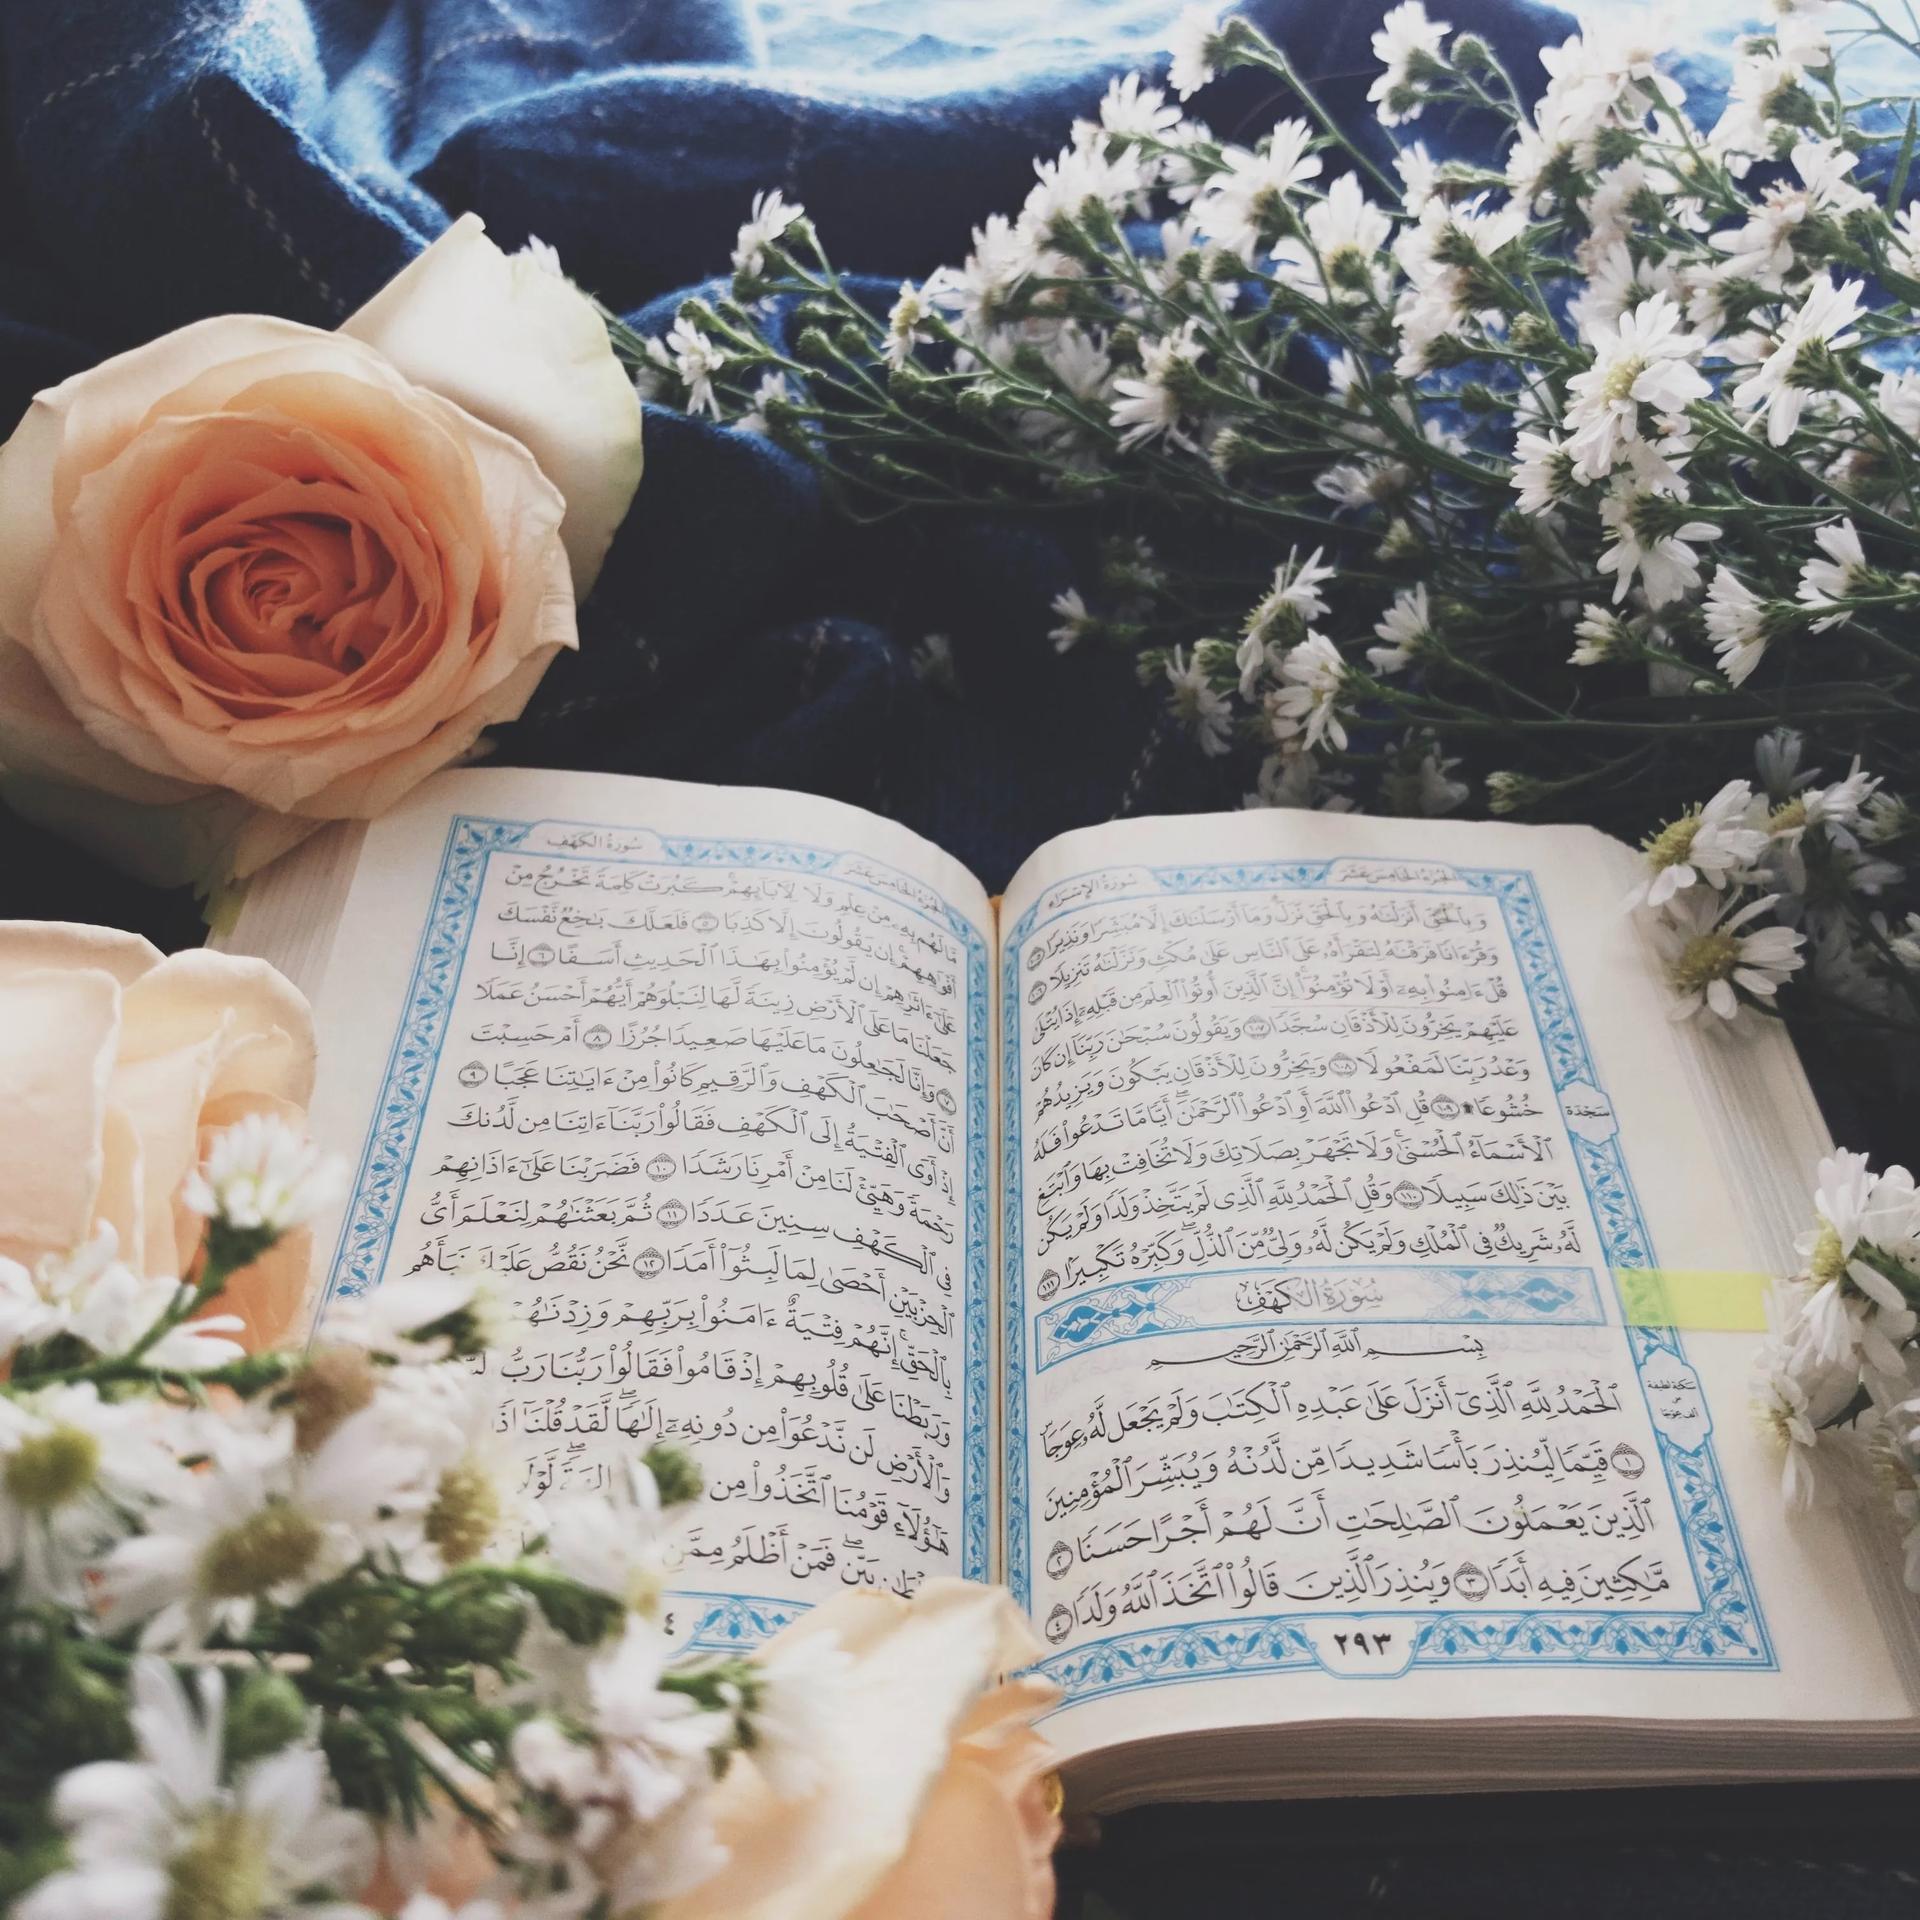 سُورَةُ الإِسْرَاء
الجُزْءُ الخَامِسَ عَشَرَ
وَبِٱلْحَقِّ أَنزَلْنَٰهُ وَبِٱلْحَقِّ نَزَلَ وَمَآ أَرْسَلْنَٰكَ إِلَّا مُبَشِّرًا وَنَذِيرًا ١٠٥
وَقُرْءَانًا فَرَقْنَٰهُ لِتَقْرَأَهُۥ عَلَى ٱلنَّاسِ عَلَىٰ مُكْثٍ وَنَزَّلْنَٰهُ تَنزِيلًا ١٠٦
قُلْ ءَامِنُوا۟ بِهِۦٓ أَوْ لَا تُؤْمِنُوٓا۟ إِنَّ ٱلَّذِينَ أُوتُوا۟ ٱلْعِلْمَ مِن قَبْلِهِۦٓ إِذَا يُتْلَىٰ
عَلَيْهِمْ يَخِرُّونَ لِلْأَذْقَانِ سُجَّدًا ١٠٧ وَيَقُولُونَ سُبْحَٰنَ رَبِّنَآ إِن كَانَ
وَعْدُ رَبِّنَا لَمَفْعُولًا ١٠٨ وَيَخِرُّونَ لِلْأَذْقَانِ يَبْكُونَ وَيَزِيدُهُمْ
خُشُوعًا ۩ ١٠٩ قُلِ ٱدْعُوا۟ ٱللَّهَ أَوِ ٱدْعُوا۟ ٱلرَّحْمَٰنَ ۖ أَيًّا مَّا تَدْعُوا۟ فَلَهُ
سَجْدَة
ٱلْأَسْمَآءُ ٱلْحُسْنَىٰ ۚ وَلَا تَجْهَرْ بِصَلَاتِكَ وَلَا تُخَافِتْ بِهَا وَٱبْتَغِ
بَيْنَ ذَٰلِكَ سَبِيلًا ١١٠ وَقُلِ ٱلْحَمْدُ لِلَّهِ ٱلَّذِى لَمْ يَتَّخِذْ وَلَدًا وَلَمْ يَكُن
لَّهُۥ شَرِيكٌ فِى ٱلْمُلْكِ وَلَمْ يَكُن لَّهُۥ وَلِىٌّ مِّنَ ٱلذُّلِّ ۖ وَكَبِّرْهُ تَكْبِيرًۢا ١١١
سُورَةُ الكَهْفِ
بِسْمِ ٱللَّهِ ٱلرَّحْمَٰنِ ٱلرَّحِيمِ
ٱلْحَمْدُ لِلَّهِ ٱلَّذِىٓ أَنزَلَ عَلَىٰ عَبْدِهِ ٱلْكِتَٰبَ وَلَمْ يَجْعَل لَّهُۥ عِوَجَا ۜ
سكتة لطيفة
على
ألف عوجا
١ قَيِّمًا لِّيُنذِرَ بَأْسًا شَدِيدًا مِّن لَّدُنْهُ وَيُبَشِّرَ ٱلْمُؤْمِنِينَ
ٱلَّذِينَ يَعْمَلُونَ ٱلصَّٰلِحَٰتِ أَنَّ لَهُمْ أَجْرًا حَسَنًا ٢
مَّٰكِثِينَ فِيهِ أَبَدًا ٣ وَيُنذِرَ ٱلَّذِينَ قَالُوا۟ ٱتَّخَذَ ٱللَّهُ وَلَدًا ٤
٢٩٣
الجُزْءُ الخَامِسَ عَشَرَ
سُورَةُ الكَهْفِ
مَّا لَهُم بِهِۦ مِنْ عِلْمٍ وَلَا لِءَابَآئِهِمْ ۚ كَبُرَتْ كَلِمَةً تَخْرُجُ مِنْ
أَفْوَٰهِهِمْ ۚ إِن يَقُولُونَ إِلَّا كَذِبًا ٥ فَلَعَلَّكَ بَٰخِعٌ نَّفْسَكَ
عَلَىٰٓ ءَاثَٰرِهِمْ إِن لَّمْ يُؤْمِنُوا۟ بِهَٰذَا ٱلْحَدِيثِ أَسَفًا ٦ إِنَّا
جَعَلْنَا مَا عَلَى ٱلْأَرْضِ زِينَةً لَّهَا لِنَبْلُوَهُمْ أَيُّهُمْ أَحْسَنُ عَمَلًا
٧ وَإِنَّا لَجَٰعِلُونَ مَا عَلَيْهَا صَعِيدًا جُرُزًا ٨ أَمْ حَسِبْتَ
أَنَّ أَصْحَٰبَ ٱلْكَهْفِ وَٱلرَّقِيمِ كَانُوا۟ مِنْ ءَايَٰتِنَا عَجَبًا ٩
إِذْ أَوَى ٱلْفِتْيَةُ إِلَى ٱلْكَهْفِ فَقَالُوا۟ رَبَّنَآ ءَاتِنَا مِن لَّدُنكَ
رَحْمَةً وَهَيِّئْ لَنَا مِنْ أَمْرِنَا رَشَدًا ١٠ فَضَرَبْنَا عَلَىٰٓ ءَاذَانِهِمْ
فِى ٱلْكَهْفِ سِنِينَ عَدَدًا ١١ ثُمَّ بَعَثْنَٰهُمْ لِنَعْلَمَ أَىُّ
ٱلْحِزْبَيْنِ أَحْصَىٰ لِمَا لَبِثُوٓا۟ أَمَدًا ١٢ نَّحْنُ نَقُصُّ عَلَيْكَ نَبَأَهُم
بِٱلْحَقِّ ۚ إِنَّهُمْ فِتْيَةٌ ءَامَنُوا۟ بِرَبِّهِمْ وَزِدْنَٰهُمْ
وَرَبَطْنَا عَلَىٰ قُلُوبِهِمْ إِذْ قَامُوا۟ فَقَالُوا۟ رَبُّنَا رَبُّ
وَٱلْأَرْضِ لَن نَّدْعُوَا۟ مِن دُونِهِۦٓ إِلَٰهًا ۖ لَّقَدْ قُلْنَآ إِذًا
هَٰٓؤُلَآءِ قَوْمُنَا ٱتَّخَذُوا۟ مِن
بَيِّنٍ ۖ فَمَنْ أَظْلَمُ مِمَّنِ